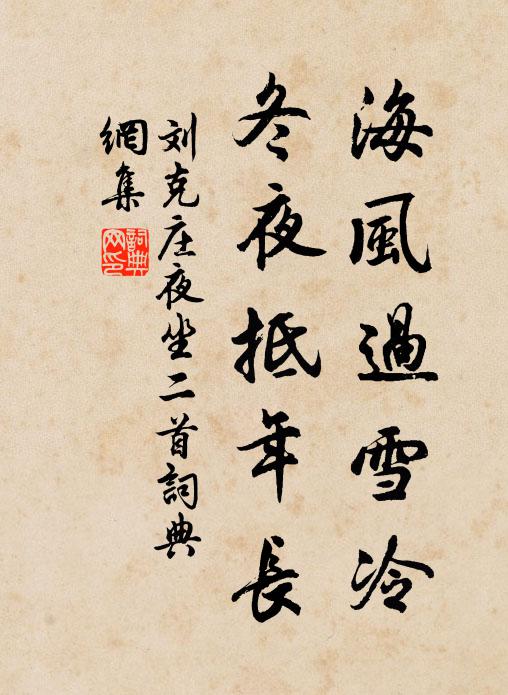 海風過雪冷
冬夜抵年長
刘克庄夜坐二首詞典
網集
詞典
网印